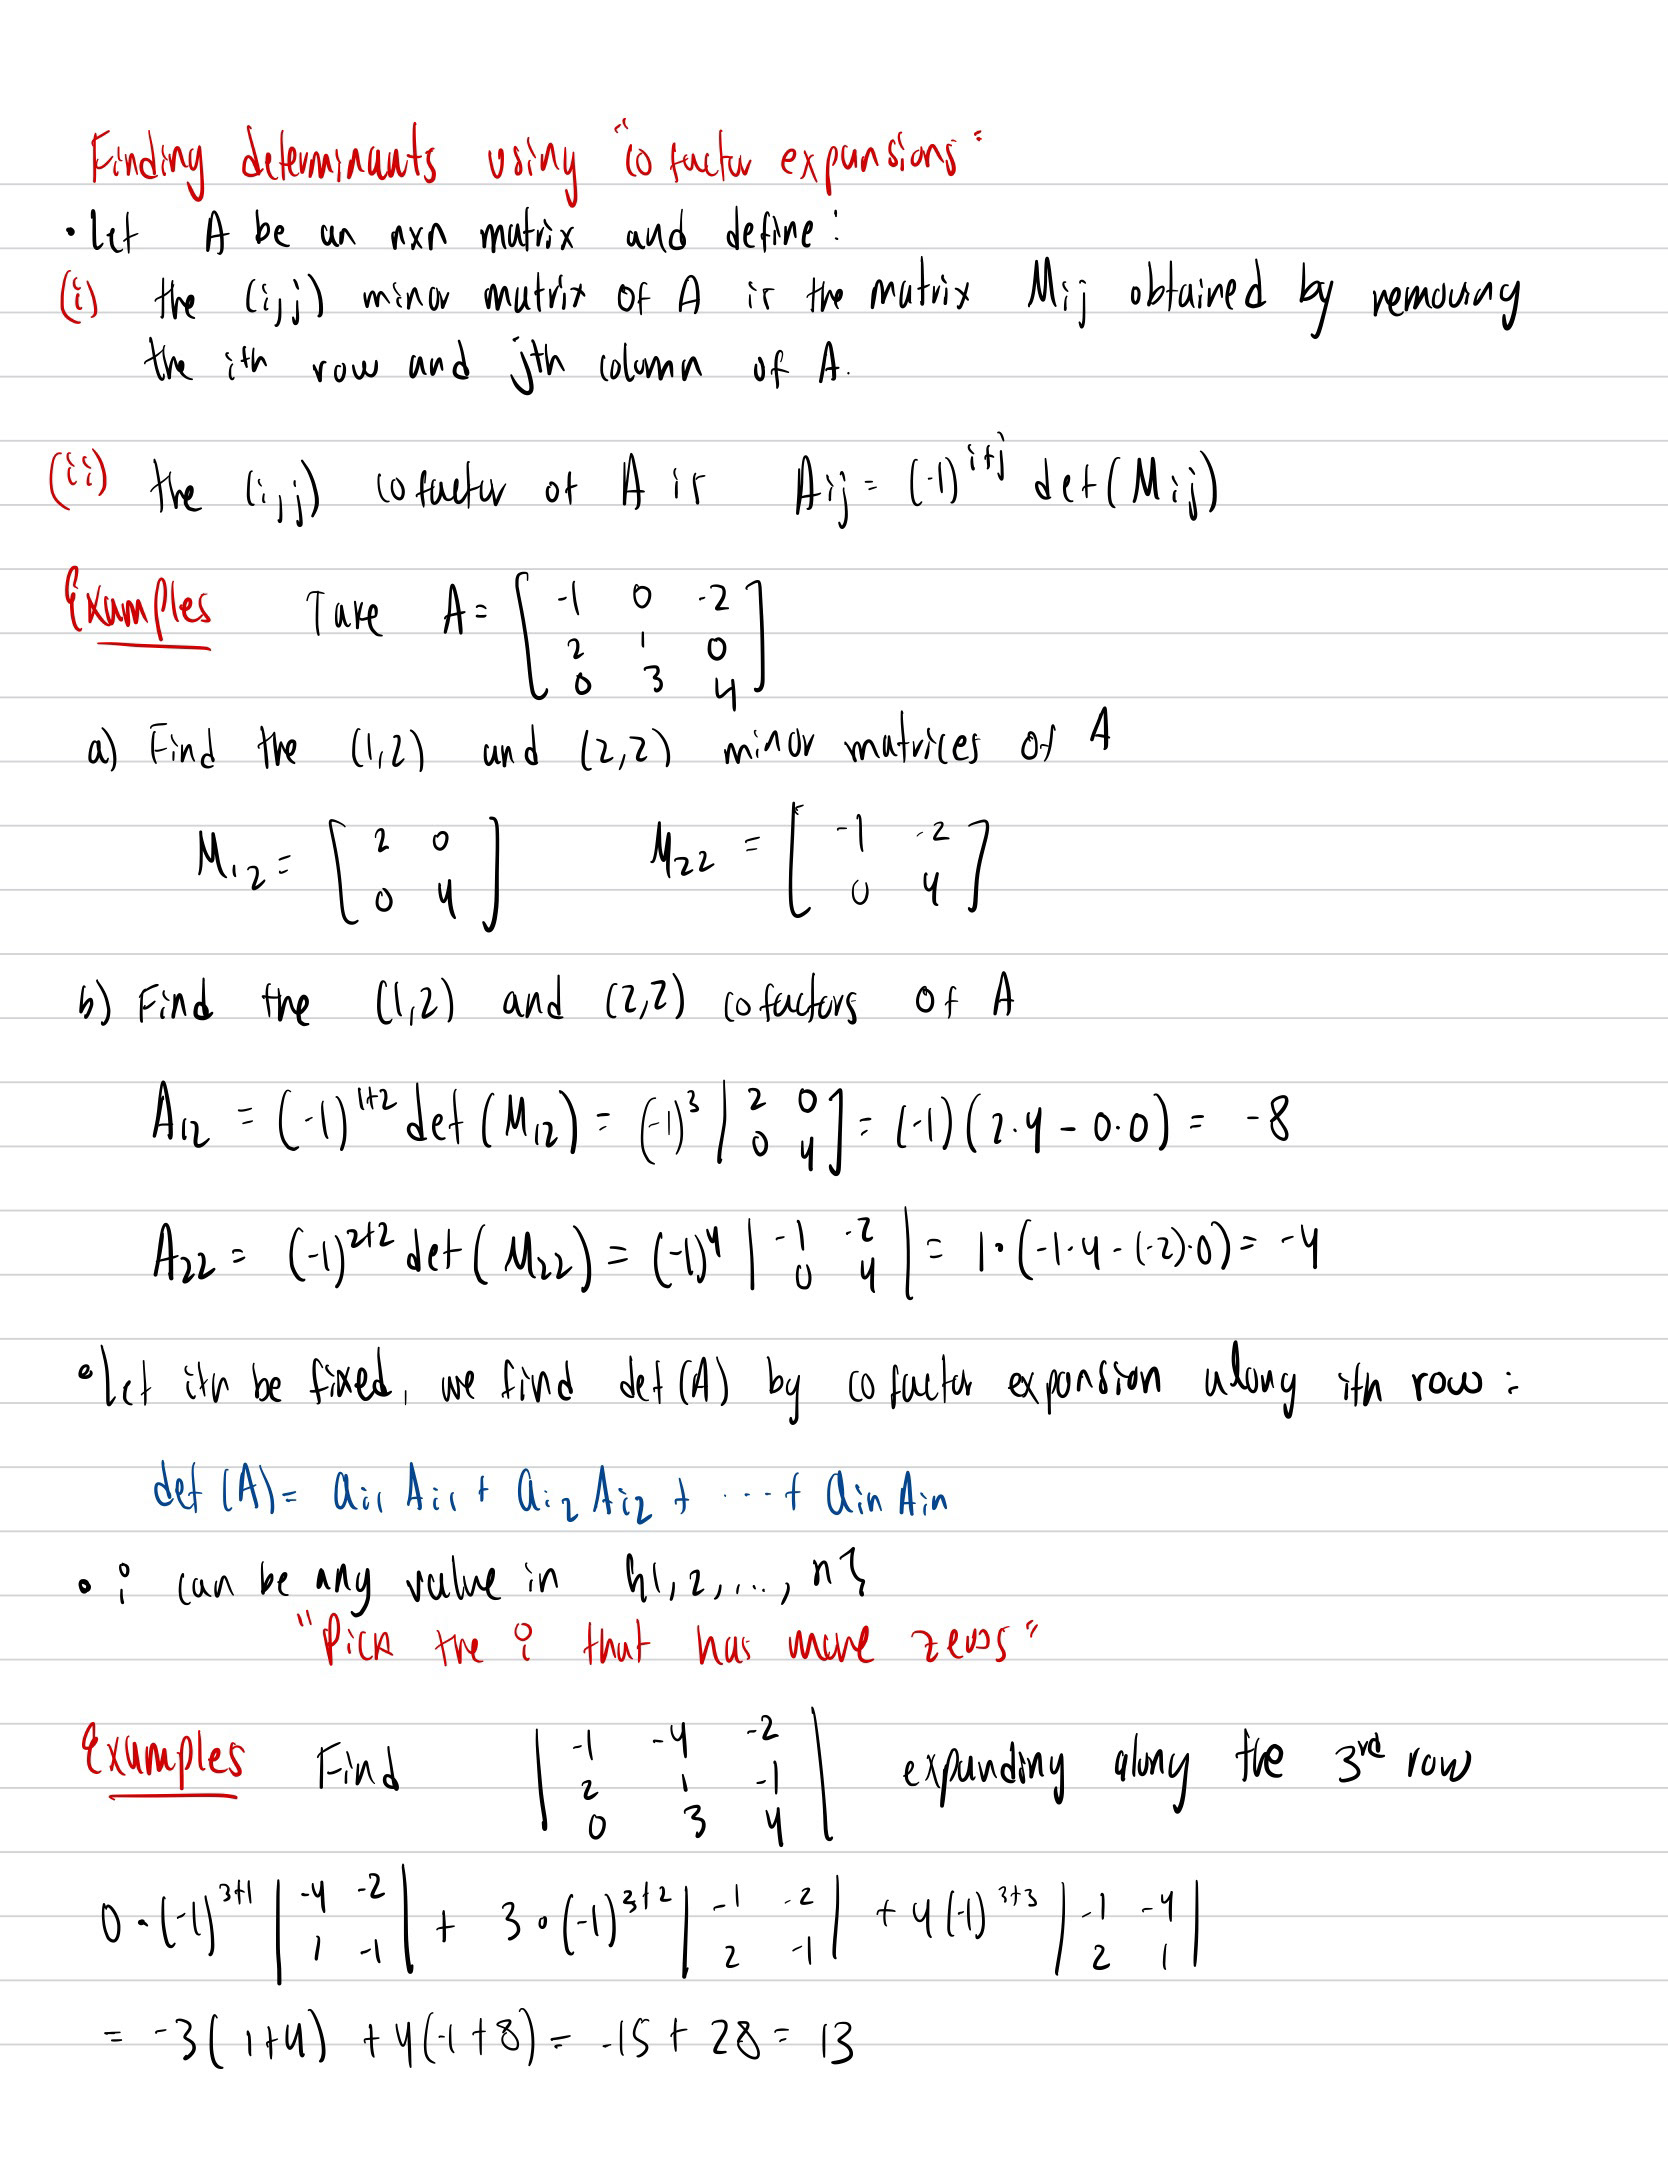 Finding determinants using "cofactor expansions"
• Let A be an nxn matrix and define:
(i) the (i,j) minor matrix of A is the matrix Mij obtained by removing
the ith row and jth column of A.
(ii) the (i,j) cofactor of A is Aij = (-1)^{i+j} det(Mij)
Examples Take A = [ -1 0 -2
2 1 0
0 3 4 ]
a) Find the (1,2) and (2,2) minor matrices of A
M12 = [ 2 0 ; 0 4 ] M22 = [ -1 -2 ; 0 4 ]
b) Find the (1,2) and (2,2) cofactors of A
A12 = (-1)^{1+2} det(M12) = (-1)^3 | 2 0 ; 0 4 ] = (-1)(2·4 - 0·0) = -8
A22 = (-1)^{2+2} det(M22) = (-1)^4 | -1 -2 ; 0 4 | = 1·(-1·4 - (-2)·0) = -4
• Let ith be fixed, we find det(A) by cofactor expansion along ith row:
det(A) = ai1 Ai1 + ai2 Ai2 + ... + ain Ain
• i can be any value in {1,2,..., n}
"Pick the i that has more zeros"
Examples Find | -1 -4 -2 ; 2 1 -1 ; 0 3 4 | expanding along the 3rd row
0·(-1)^{3+1} | -4 -2 ; 1 -1 | + 3·(-1)^{3+2} | -1 -2 ; 2 -1 | + 4(-1)^{3+3} | -1 -4 ; 2 1 |
= -3(1+4) + 4(-1+8) = -15 + 28 = 13